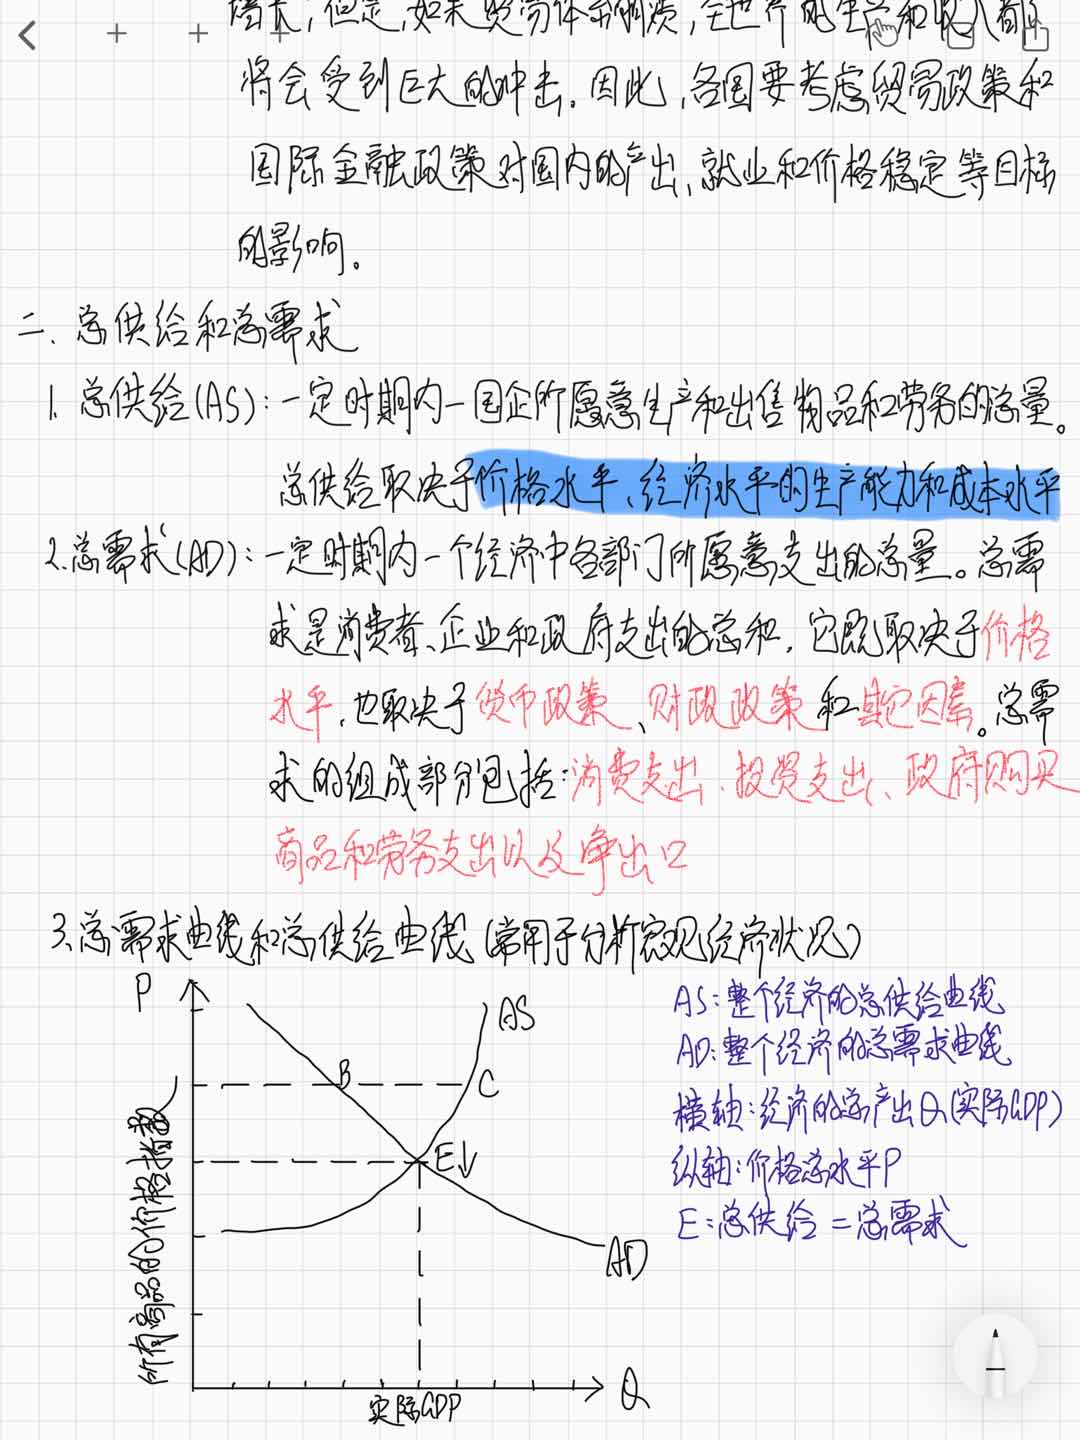 增长；但是，如果贸易体系崩溃，全世界的生产和收入都
将会受到巨大的冲击。因此，各国要考虑贸易政策和
国际金融政策对国内的产出、就业和价格稳定等目标
的影响。
二、总供给和总需求
1. 总供给(AS)：一定时期内一国企所愿意生产和出售物品和劳务的总量。
总供给取决于价格水平、经济水平的生产能力和成本水平
2. 总需求(AD)：一定时期内一个经济中各部门所愿意支出的总量。总需
求是消费者、企业和政府支出的总和，它既取决于价格
水平，也取决于货币政策、财政政策和其它因素。总需
求的组成部分包括：消费支出、投资支出、政府购买
商品和劳务支出以及净出口
3. 总需求曲线和总供给曲线（常用于分析宏观经济状况）
P
AS
B
C
E↓
AD
所有商品的价格指数
实际GDP
Q
AS：整个经济的总供给曲线
AD：整个经济的总需求曲线
横轴：经济的总产出Q(实际GDP)
纵轴：价格总水平P
E：总供给＝总需求